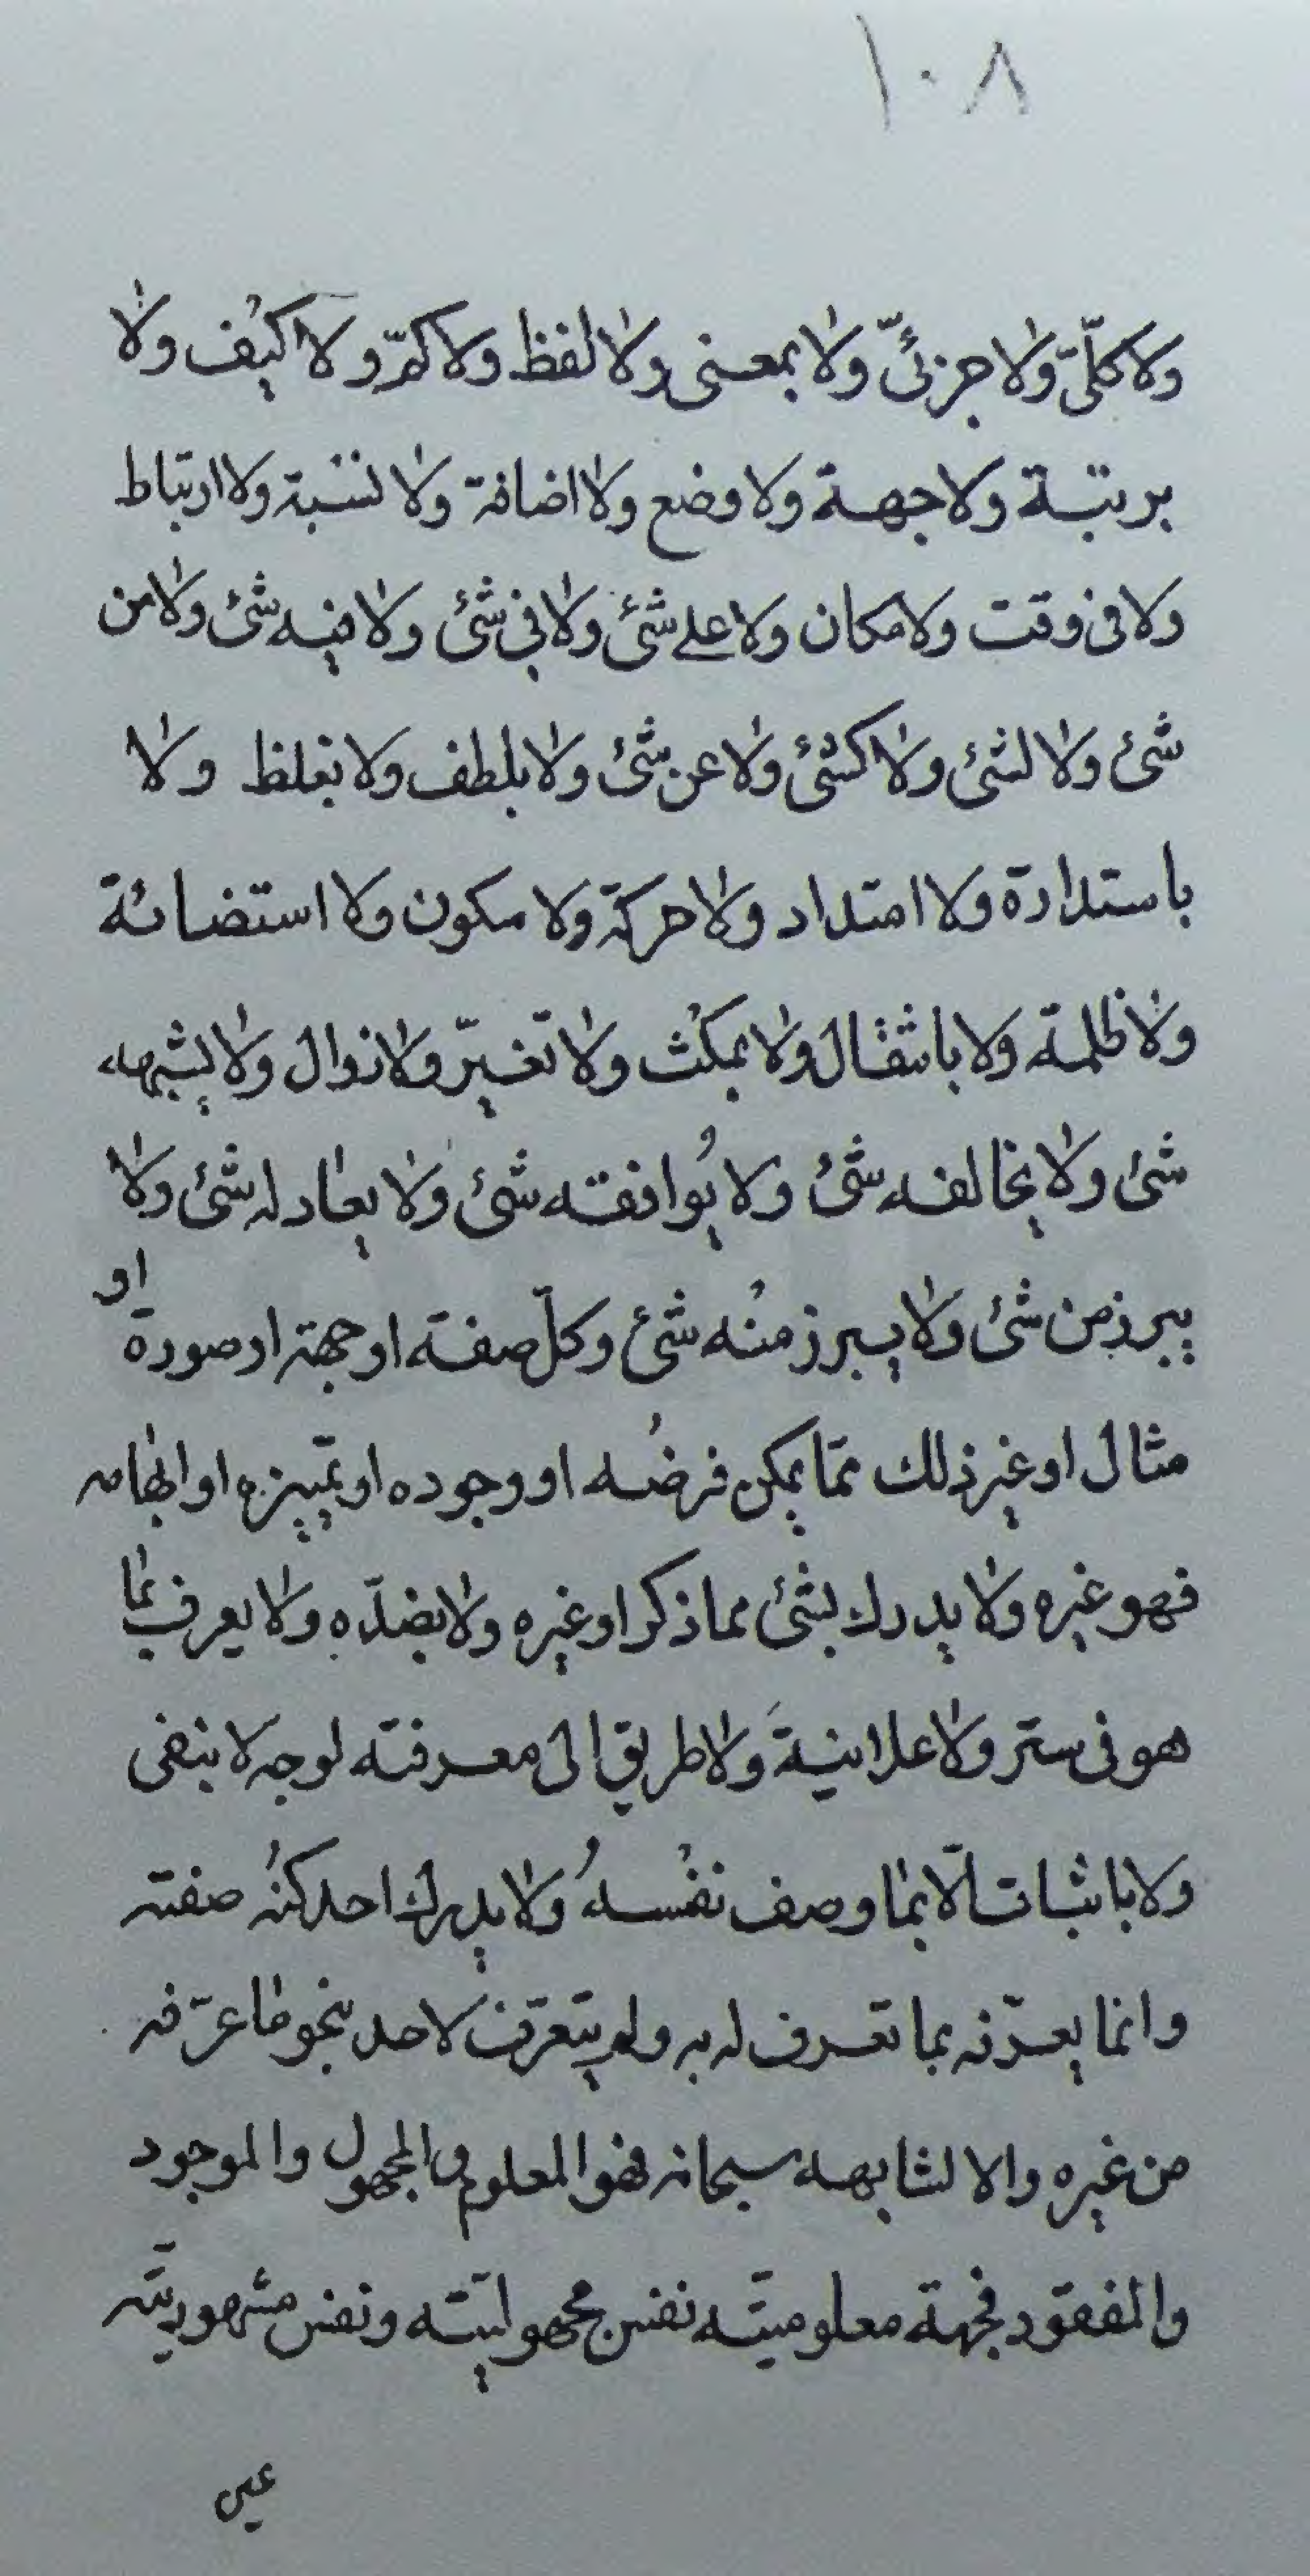 ١٠٨
ولا كلّيّ ولا جزئيّ ولا بمعنى ولا لفظ ولا كمّ ولا كيف ولا
برتبة ولا جهة ولا وضع ولا اضافة ولا نسبة ولا ارتباط
ولا فى وقت ولا مكان ولا على شئ ولا فى شئ ولا فيه شئ ولا من
شئ ولا لشئ ولا كشئ ولا عن شئ ولا بلطف ولا بغلظ ولا
باستدارة ولا امتداد ولا حركة ولا سكون ولا استضائة
ولا ظلمة ولا بانتقال ولا بمكث ولا تغيّر ولا زوال ولا يشبهه
شئ ولا يخالفه شئ ولا يُوافقه شئ ولا يعادله شئ ولا
يبرز من شئ ولا يبرز منه شئ وكلّ صفة او جهة او صورة او
مثال او غير ذلك ممّا يمكن فرضه او وجوده او تمييزه او ابهامه
فهو غيره ولا يدرك بشئ مما ذكر او غيره ولا بضدّه ولا يعرف بما
هو فى ستر ولا علانية ولا طريق الى معرفته لوجه لا بنفى
ولا باثبات الّا بما وصف نفسهُ ولا يدرك احد كنه صفته
وانما يعرّفه بما تعرف له به ولم يتعرّف لاحد بنحو ما عرّفه
من غيره والا لشابهه سبحانه فهو المعلوم والمجهول والموجود
والمفقود فجهة معلوميّته نفس مجهوليّته ونفس مشهوديّته
عين